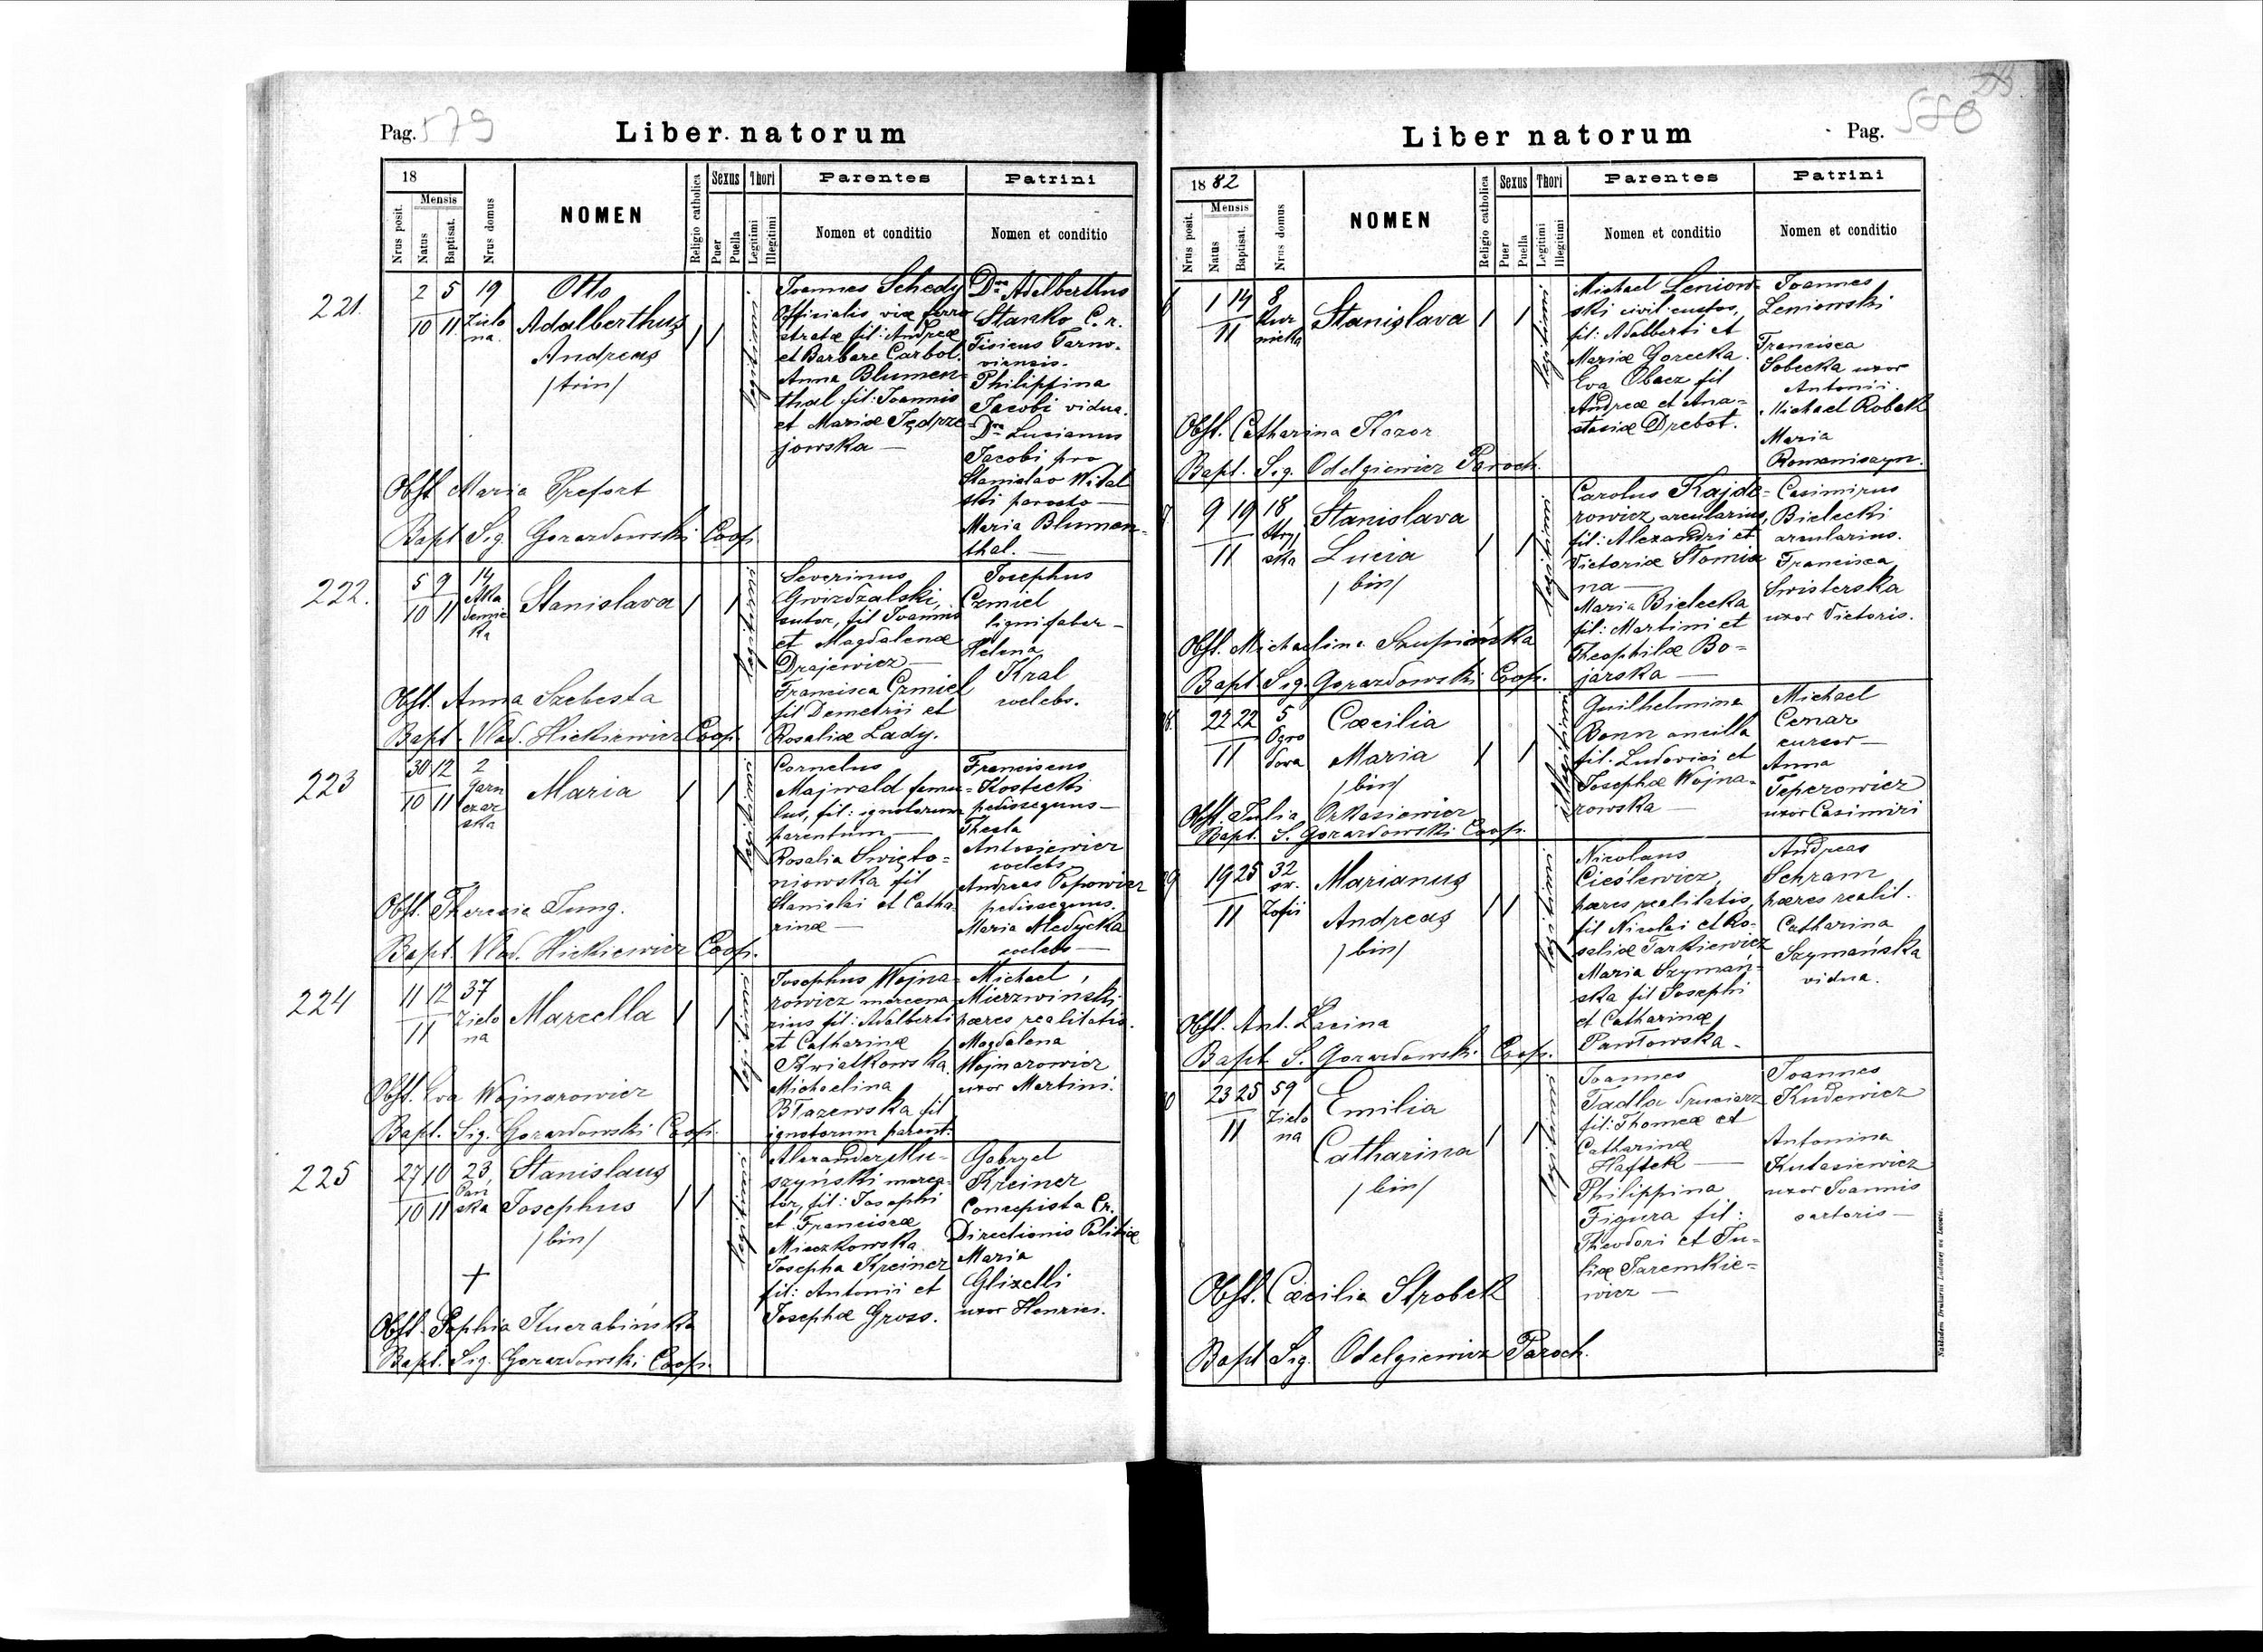 Pag. 579
Liber natorum
18
Nrus posit.
Mensis
Natus
Baptisat.
Nrus domus
NOMEN
Religio catholica
Sexus
Puer
Puella
Thori
Legitimi
Illegitimi
Parentes
Nomen et conditio
Patrini
Nomen et conditio
221.
2 5 19
10 11 Zielo
na.
Otto
Adalberthus
Andreas
/trin/
legitimi
Joannes Schedy
Officialis viæ ferro
stratæ fil: Andreæ
et Barbare Carbol.
Anna Blumen-
thal fil: Joannis
et Mariæ Jędrze-
jowska —
Dr. Adelberthus
Stanko C. r.
Fisicus Tarno-
viensis.
Philippina
Jacobi vidua.
Dr. Lucianus
Jacobi pro
Stanislao Widal
ski parocho —
Maria Blumen-
thal. —
Obst. Maria Prefort
Bapt Sig Gorazdowski Coop.
222.
5 9 14
10 11 Aka
demic
ka
Stanislava
legitimi
Severinus
Gwizdzalski,
sutor, fil Joannis
et Magdalenæ
Drajewicz —
Francisca Czmiel
fil Demetrii et
Rosaliæ Lady.
Josephus
Czmiel
lignifaber —
Helena
Kral
coelebs.
Obst. Anna Szebesta
Bapt. Vlad. Hickiewicz Coop.
223
30 12 2
10 11 Garn
czar
ska
Maria
legitimi
Cornelus
Majwald famu-
lus, fil: ignotorum
parentum —
Rosalia Święto-
niowska fil
Stanislai et Catha
rinæ —
Franciscus
Kostecki
pedissequus —
Thecla
Antosiewicz
coelebs
Andreas Popowicz
pedissequus.
Maria Medycka
coelebs —
Obst. Theresie Jung.
Bapt. Vlad. Hickiewicz Coop.
224
11 12 37
11 Zielo
na
Marcella
legitimi
Josephus Wojna-
rowicz mercena
rius fil: Adalberti
et Catharinæ
Kwiatkowska.
Michaelina
Błazewska fil
ignotorum parent:
Michael
Mierzwiński
hæres realitatis.
Magdalena
Wojnarowicz
uxor Martini.
Obst. Eva Wojnarowicz
Bapt. Sig. Gorazdowski Coop.
225
27 10 23,
10 11 Pań
ska
Stanislaus
Josephus
/bin/
+
legitimi
Alexander Mu-
szyński merca-
tor, fil: Josephi
et Franciscæ
Mieczkowska.
Josepha Kreiner
fil: Antonii et
Josephæ Gross.
Gabryel
Kreiner
Concepista Cr.
Directionis Politiæ
Maria
Glixelli
uxor Henrici.
Obst. Sophia Kuczabińska
Bapt. Sig. Gorazdowski Coop.
Liber natorum
Pag. 580
18 82
Nrus posit.
Mensis
Natus
Baptisat.
Nrus domus
NOMEN
Religio catholica
Sexus
Puer
Puella
Thori
Legitimi
Illegitimi
Parentes
Nomen et conditio
Patrini
Nomen et conditio
1 14 8
11 Kur
nicka
Stanislava
legitimi
Michael Leniow-
ski civil: custos,
fil: Adalberti et
Mariæ Gorecka.
Eva Obacz fil
Andreæ et Ana-
stasiæ Drebot.
Joannes
Leniowski
Francisca
Sobecka uxor
Antonii.
Michael Robak
Maria
Romaniszyn.
Obst. Catharina Kazor
Bapt. Sig. Odelgiewicz Paroch.
9 19 18
11 Stry
ska
Stanislava
Lucia
/bin/
legitimi
Carolus Kajde-
rowicz arcularius,
fil: Alexandri et
Victoriæ Słomia
na —
Maria Bielecka
fil: Martini et
Theophilæ Bo-
jarska —
Casimirus
Bielecki
arcularius.
Francisca
Swisterska
uxor Victoris.
Obst. Michaelina Szupińska
Bapt. Sig. Gorazdowski Coop.
22 22 5
11 Ogro
dova
Cæcilia
Maria
/bin/
Guilhelmina
Bonn ancilla
fil. Ludovici et
Josephæ Wojna-
rowska —
Michael
Cenar
cursor —
Anna
Teperowicz
uxor Casimiri
Obst. Julia Orkasiewicz
Bapt. S. Gorazdowski Coop.
19 25 32
11 sw.
Zofii
Marianus
Andreas
/bin/
legitimi
Nicolaus
Cieślewicz,
hæres realitatis,
fil Nicolai et Ro-
saliæ Tarkiewicz
Maria Szymań-
ska fil Josephi
et Catharinæ
Pawłowska —
Andreas
Schram
hæres realit.
Catharina
Szymańska
vidua.
Obst. Ant. Lacina
Bapt S. Gorazdowski Coop.
23 25 59
11 Zielo
na
Emilia
Catharina
/bin/
legitimi
Joannes
Tadla
fil: Thomæ et
Catharinæ
Haftek —
Philippina
Figura fil:
Theodori et Ju-
liæ Jaremkie-
wicz —
Joannes
Kudewicz
Antonina
Kutasiewicz
uxor Joannis
sartoris —
Obst. Cæcilia Strobek
Bapt Sig. Odelgiewicz Paroch.
Nakładem Drukarni Ludowej we Lwowie.